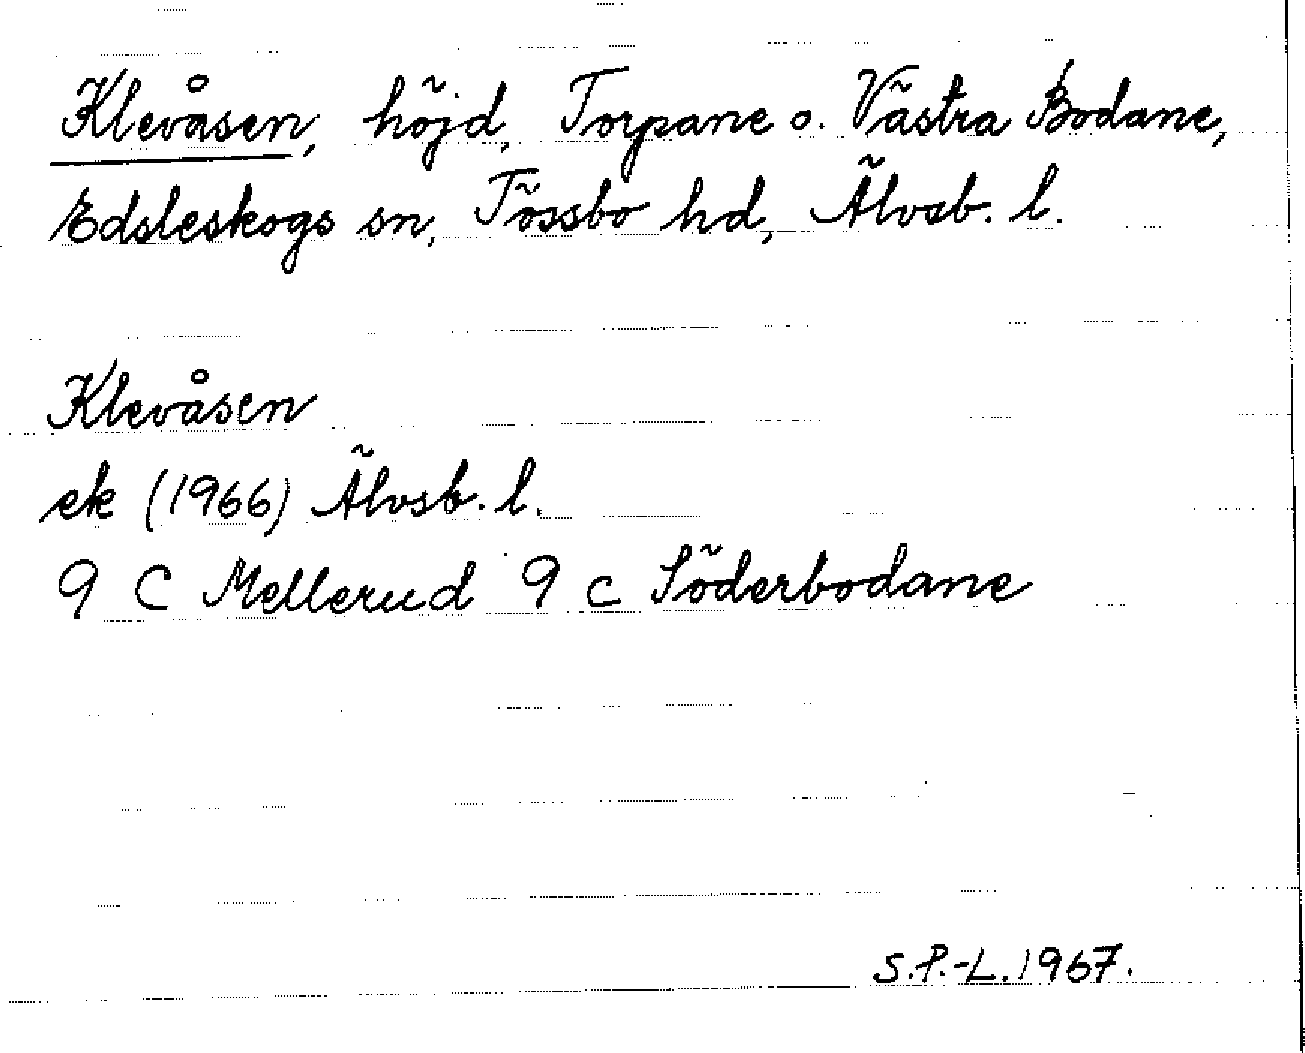 Klevåsen, höjd, Torpane o. Västra Bodane,
Edsleskogs sn, Tössbo hd, Älvsb. l.
Klevåsen
ek (1966) Älvsb. l.
9 C Mellerud 9 c Söderbodane
S.P.-L. 1967.